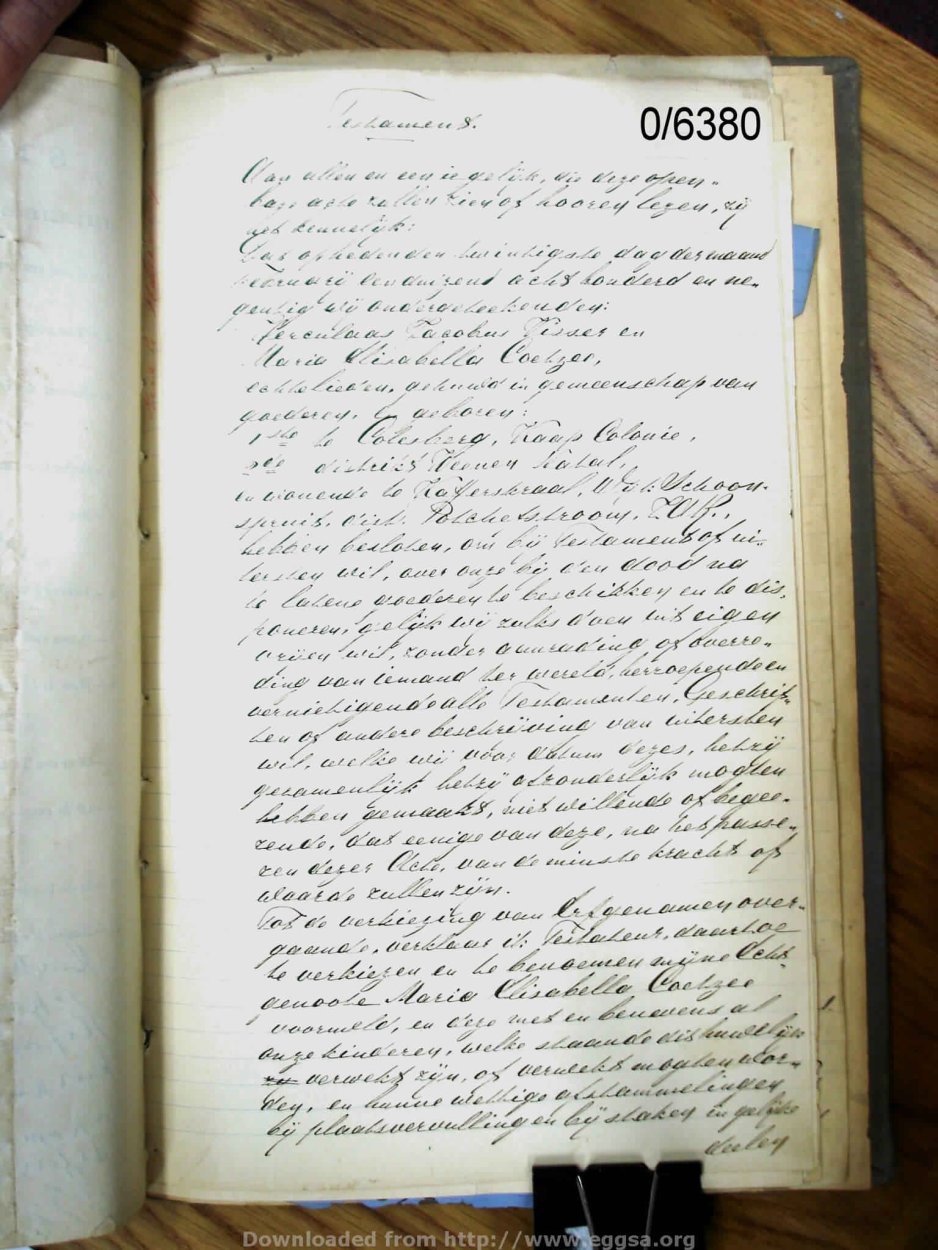 Testament.
0/6380
Aan allen en een iegelijk, die deze open-
bare acte zullen zien of hooren lezen, zij
het kennelijk:
Dat op heden den twintigste dag der maand
Februarij een duizend acht honderd en ne-
gentig wij ondergeteekenden:
Herculaas Jacobus Visser en
Maria Elisabella Coetzee,
echtelieden, gehuwd in gemeenschap van
goederen, en geboren:
1ste te Colesberg, Kaap Colonie,
2de district Weenen Natal,
en wonende te Kafferskraal, Wijk Schoon-
spruit, dist. Potchefstroom, Z.A.R.,
hebben besloten, om bij Testament of ui-
tersten wil, over onze bij den dood na
te latene goederen te beschikken en te dis-
poneren, gelijk wij zulks doen uit eigen
vrijen wil, zonder aanrading of overre-
ding van iemand ter wereld, herroepende en
vernietigende alle Testamenten, Geschrif-
ten of andere beschrijving van uitersten
wil, welke wij vóór datum dezes, hetzij
gezamenlijk hetzij afzonderlijk mogten
hebben gemaakt, niet willende of begee-
rende, dat eenige van deze, na het passe-
ren dezer Acte, van de minste kracht of
waarde zullen zijn.
Tot de verkiezing van Erfgenamen over-
gaande, verklaar ik Testateur, daartoe
te verkiezen en te benoemen mijne Echt-
genoote Maria Elisabella Coetzee
voormeld, en deze met en benevens al
onze kinderen, welke staande dit huwelijk
verwekt zijn, of verwekt mogten wor-
den, en hunne wettige afstammelingen
bij plaatsvervulling en bij staken in gelijke
deelen
Downloaded from http://www.eggsa.org